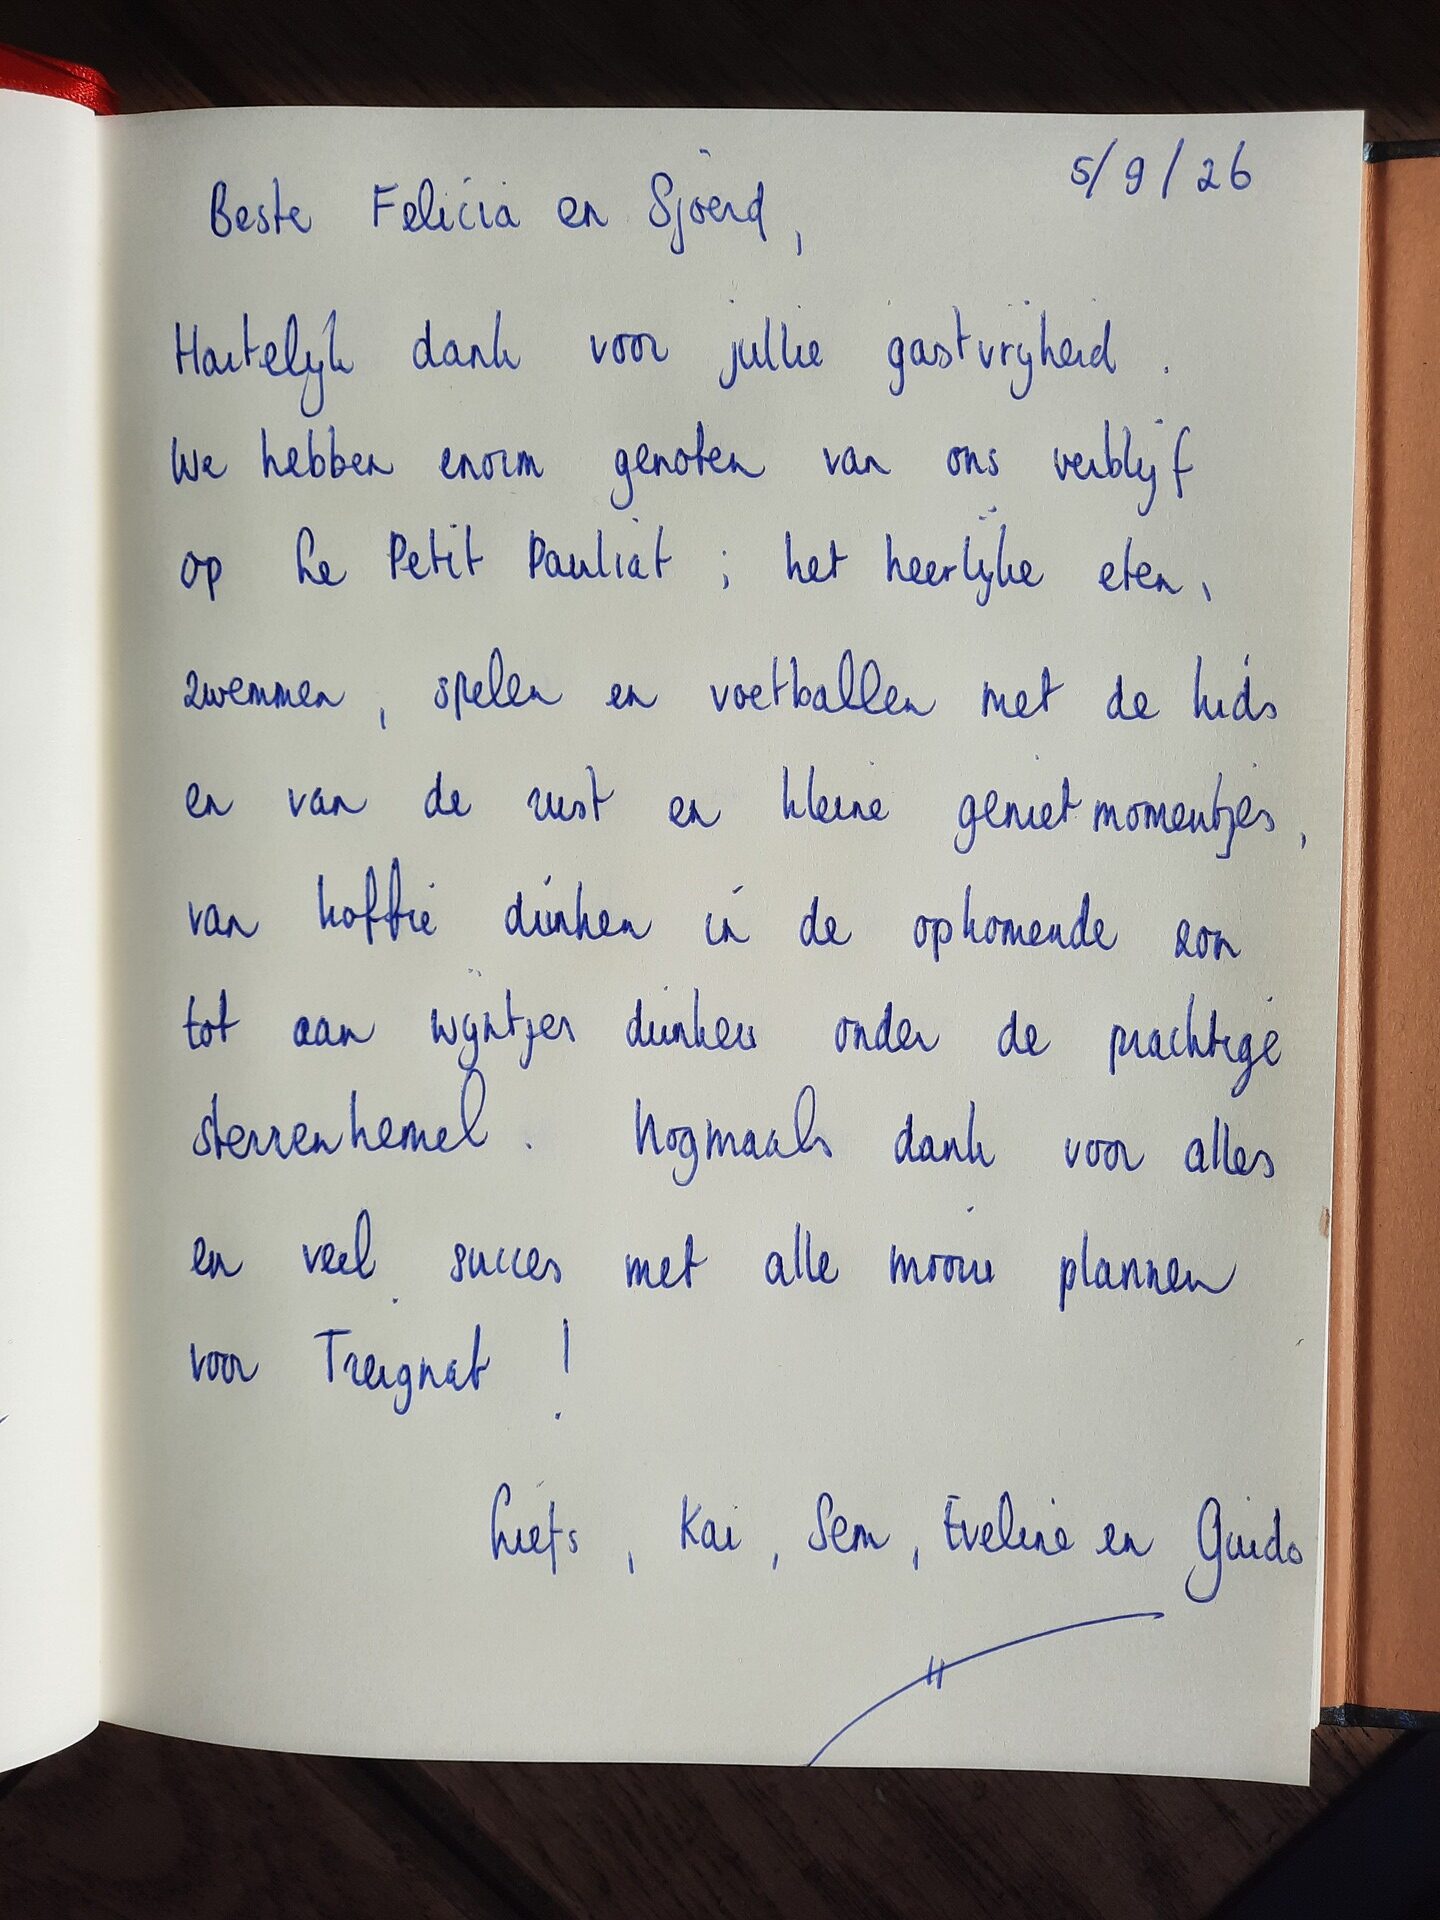 5/9/26
Beste Felicia en Sjoerd,
Hartelijk dank voor jullie gastvrijheid.
We hebben enorm genoten van ons verblijf
op Le Petit Pauliat; het heerlijke eten,
zwemmen, spelen en voetballen met de kids
en van de rust en kleine geniet momentjes,
van koffie drinken in de opkomende zon
tot aan wijntjes drinken onder de prachtige
sterrenhemel. Nogmaals dank voor alles
en veel succes met alle mooie plannen
voor Treignat!
Liefs, Kai, Sem, Eveline en Guido